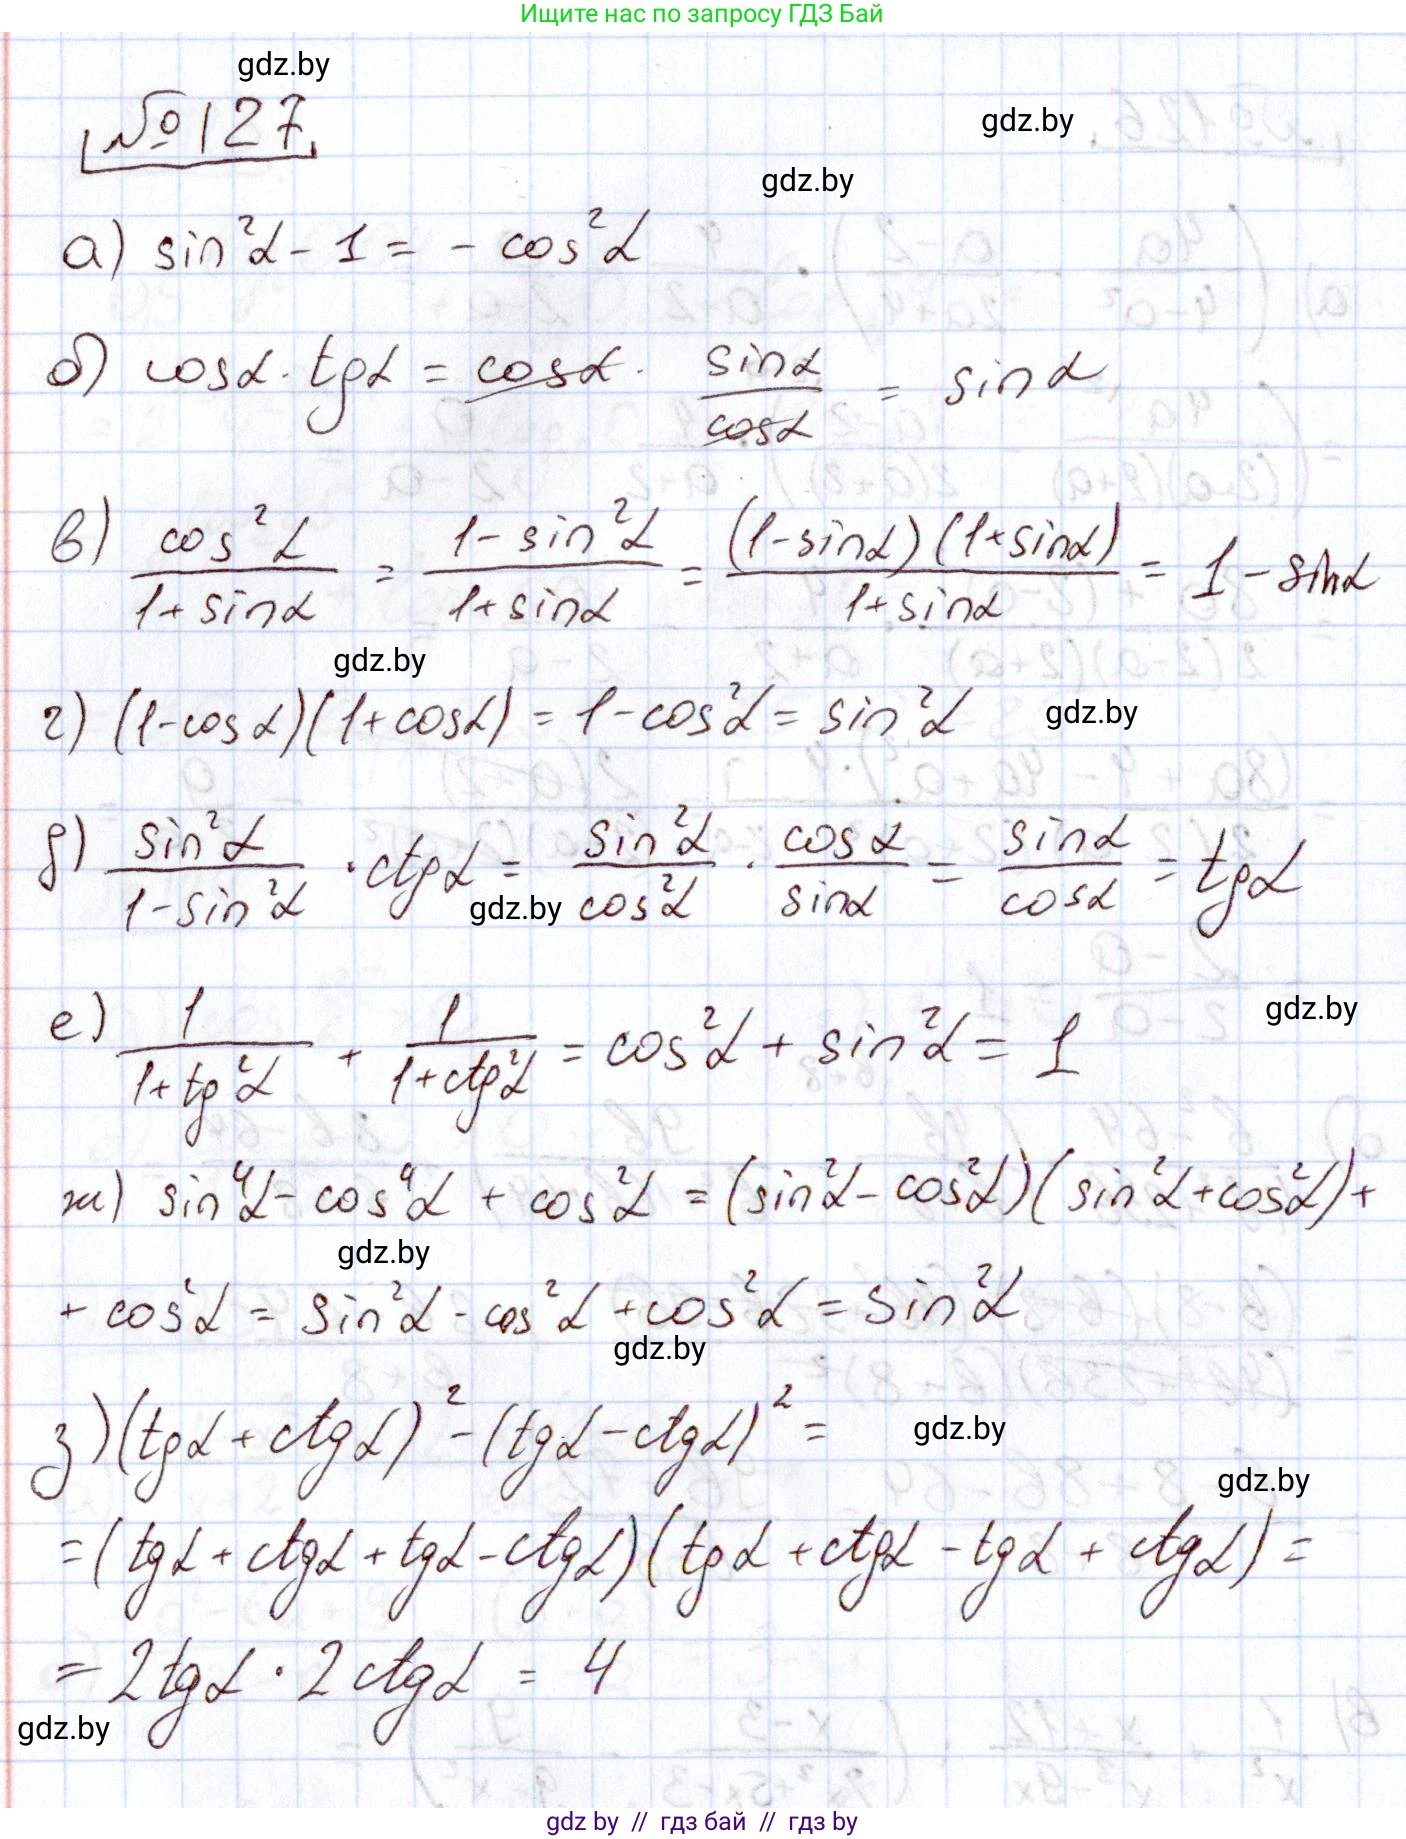 Ищите нас по запросу ГДЗ Бай
gdz.by
№127
gdz.by
gdz.by
а) sin²α - 1 = - cos²α
б) cosα · tgα = cosα · sinα/cosα = sinα
в) cos²α/(1+sinα) = (1-sin²α)/(1+sinα) = (1-sinα)(1+sinα)/(1+sinα) = 1 - sinα
gdz.by
г) (1-cosα)(1+cosα) = 1-cos²α = sin²α
gdz.by
д) sin²α/(1-sin²α) · ctgα = sin²α/cos²α · cosα/sinα = sinα/cosα = tgα
gdz.by
е) 1/(1+tg²α) + 1/(1+ctg²α) = cos²α + sin²α = 1
gdz.by
ж) sin⁴α - cos⁴α + cos²α = (sin²α - cos²α)(sin²α+cos²α)+
gdz.by
+ cos²α = sin²α - cos²α + cos²α = sin²α
gdz.by
з) (tgα + ctgα)² - (tgα - ctgα)² =
gdz.by
gdz.by
= (tgα + ctgα + tgα - ctgα)(tgα + ctgα - tgα + ctgα) =
= 2tgα · 2ctgα = 4
gdz.by
gdz by // гдз бай // гдз by